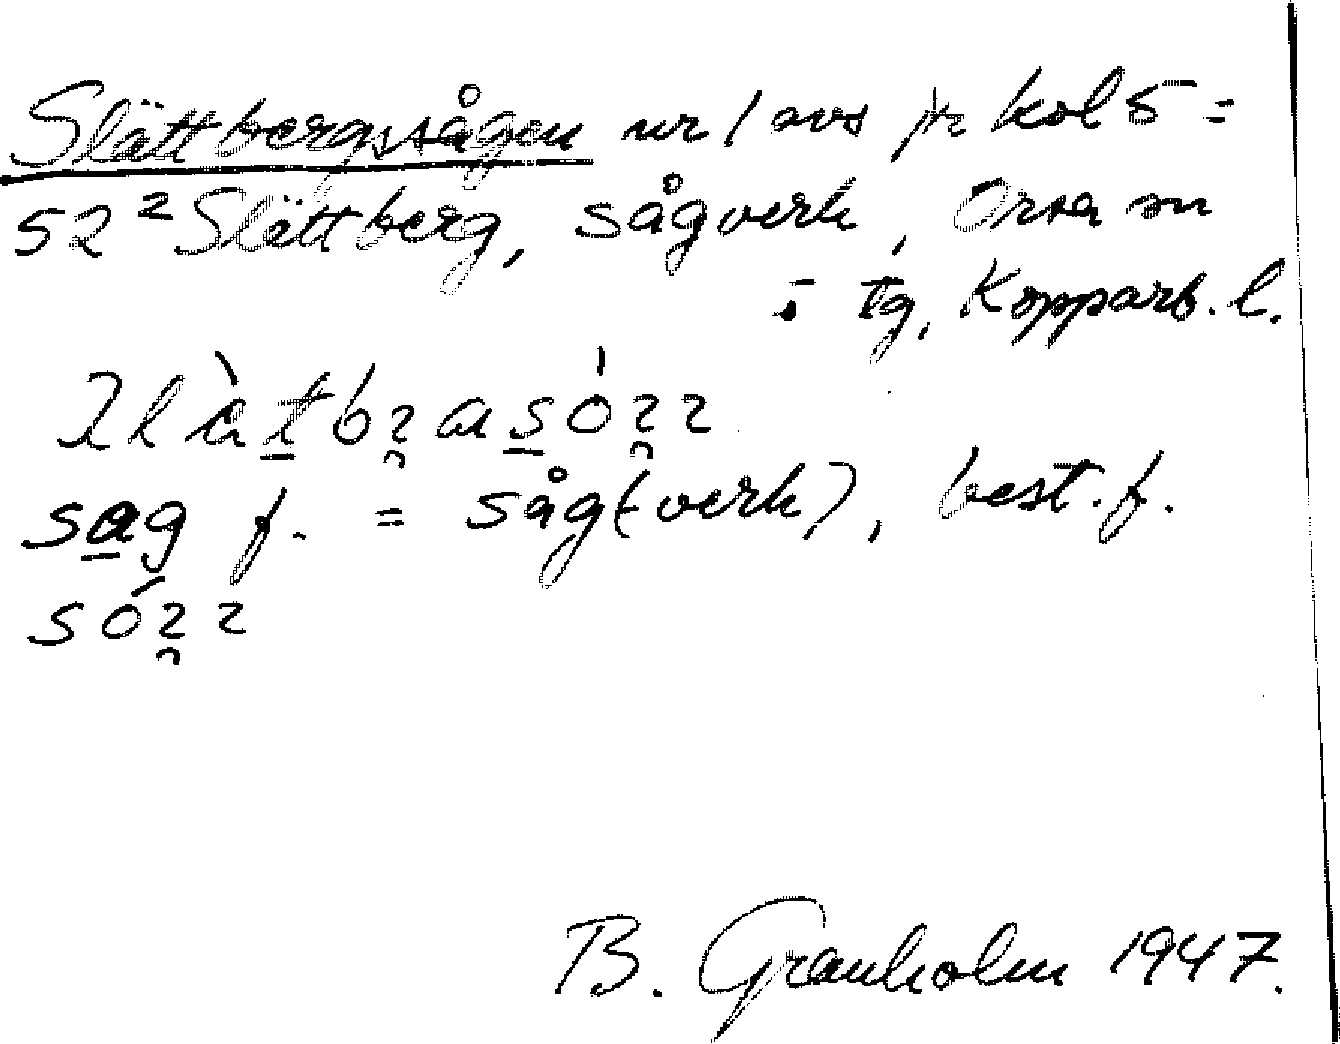 Slättbergssågen nr 1 avs jr kol 5 =
52² Slättberg, sågverk, Orsa sn
i tg, Kopparb. l.
sag f. = såg(verk), best. f.
B. Granholm 1947.